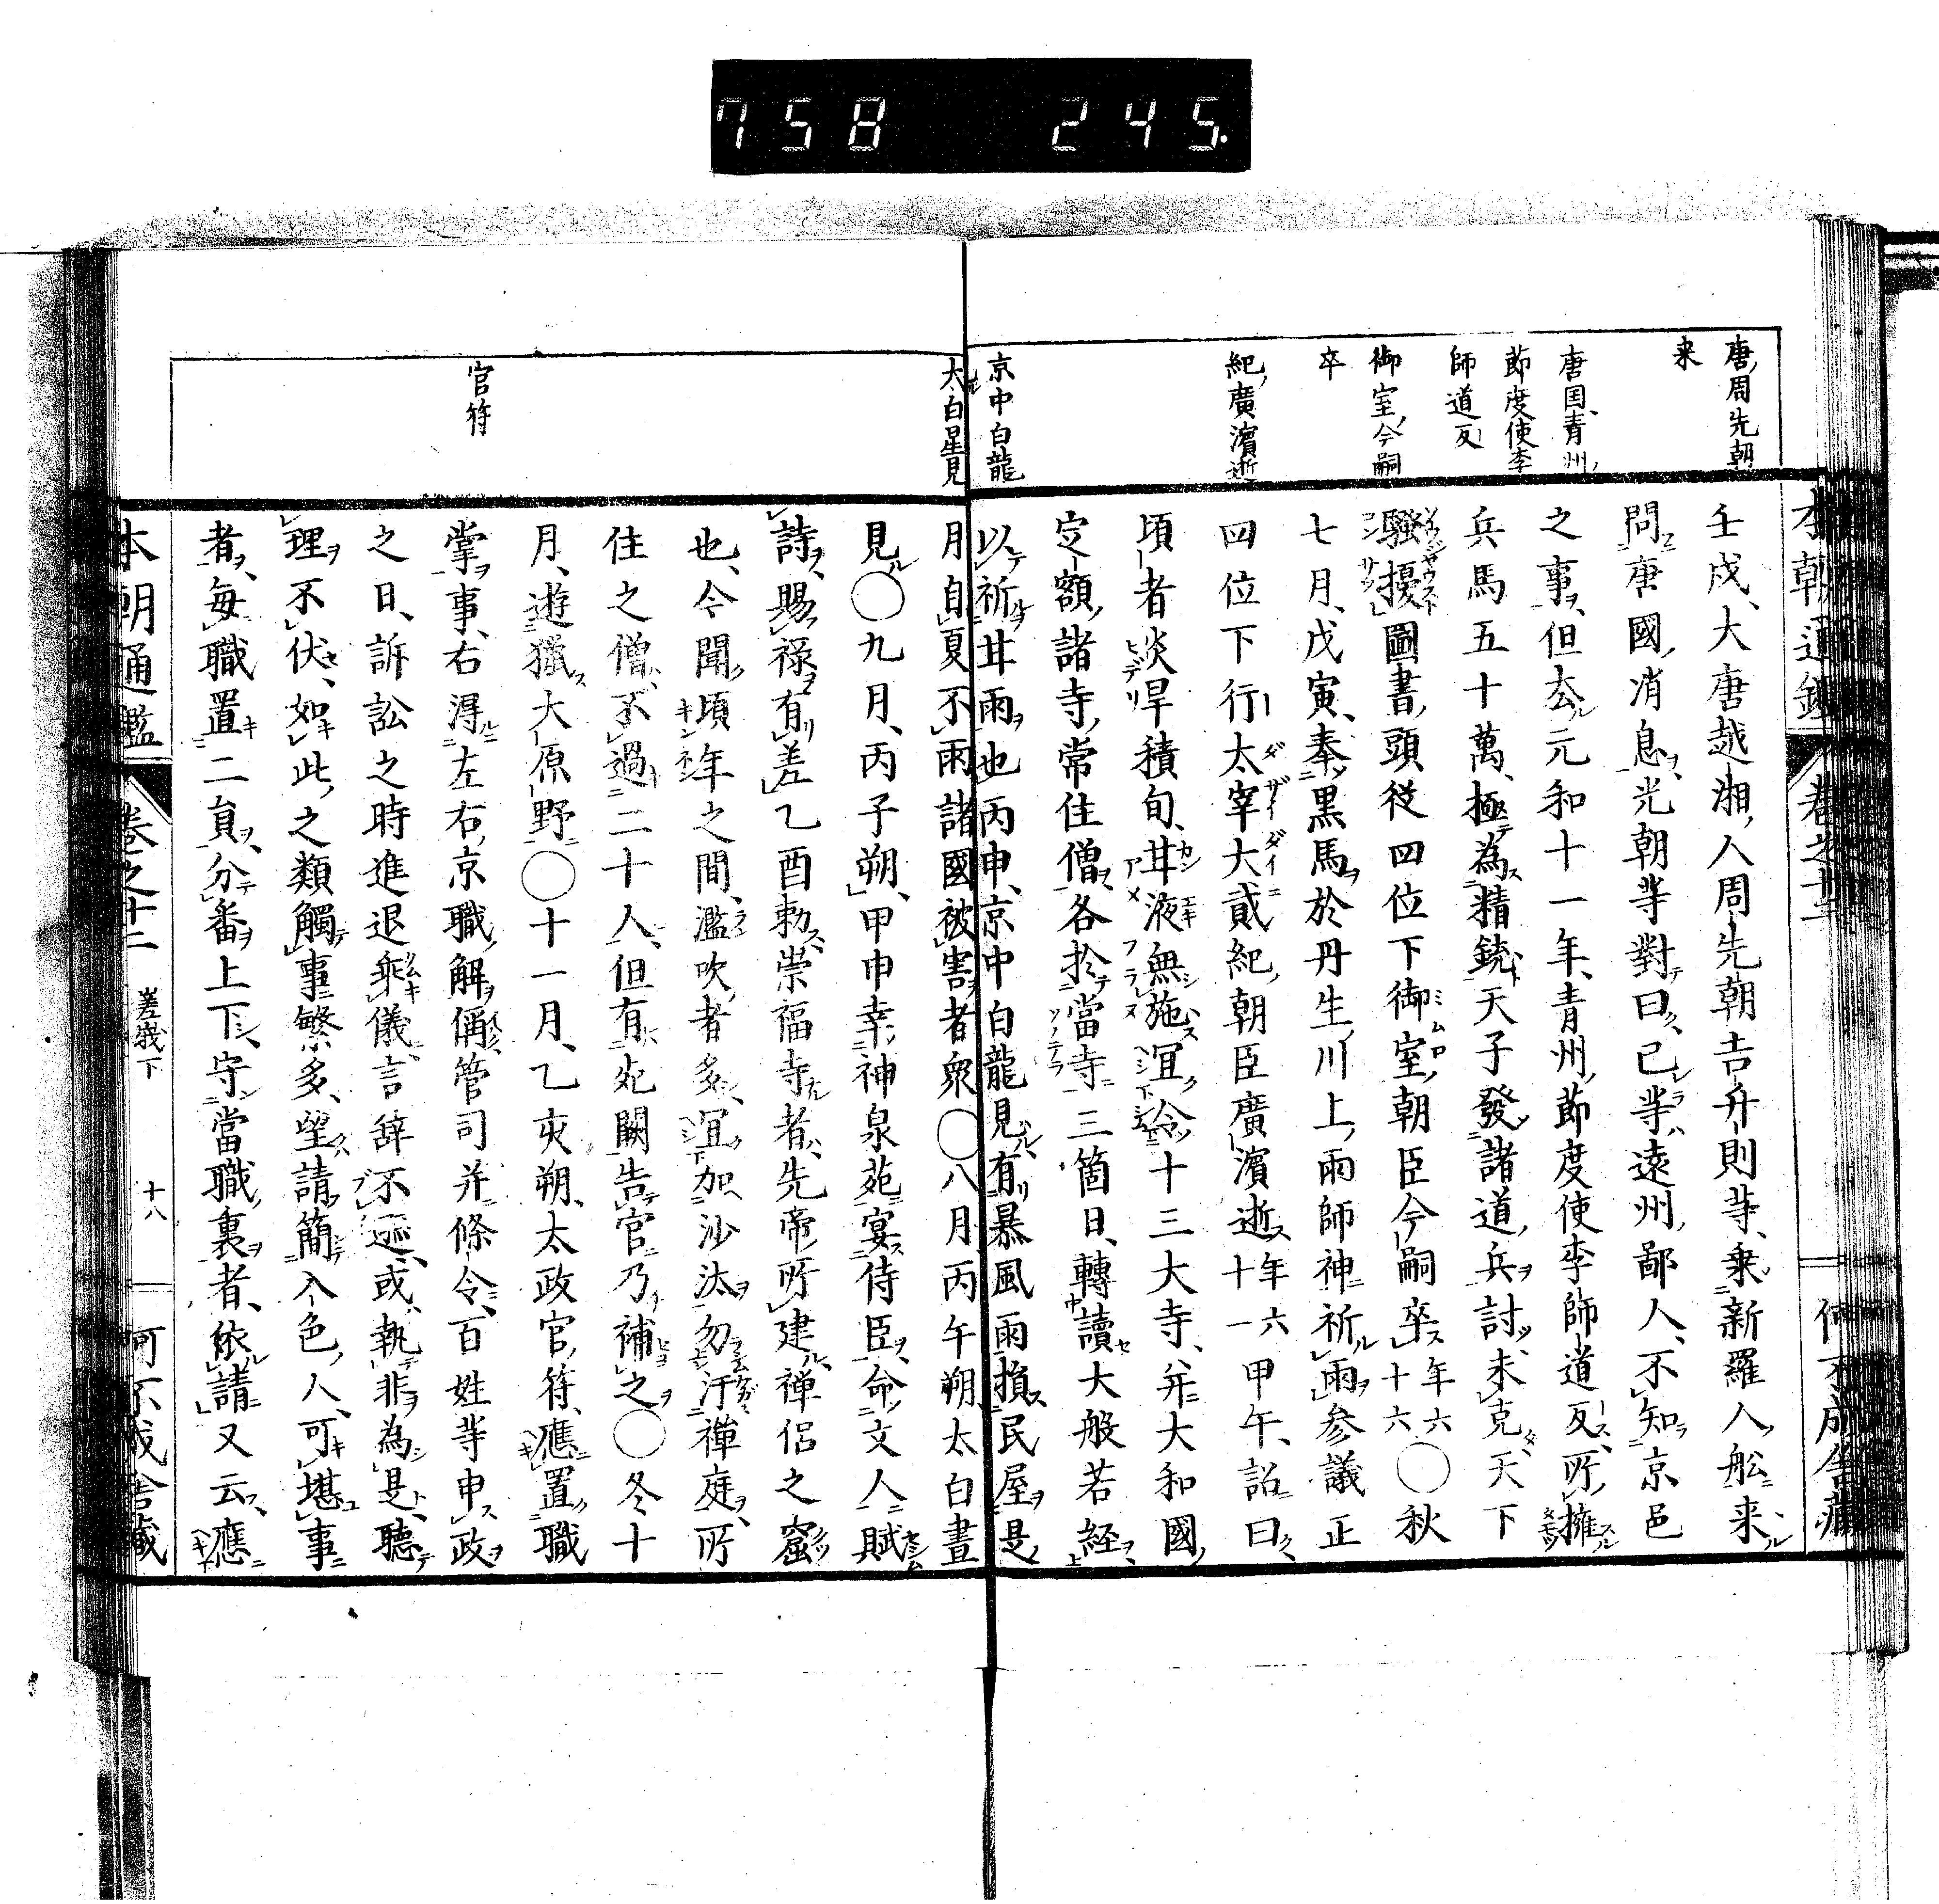 758 245.
唐周先朝
来
唐国青州
節度使李
師道反
御室今嗣
卒
紀廣濱逝
京中白龍
本朝通鑑
卷之十二
何不成舎藏
壬戌、大唐越湘人周先朝吉升則等、乗新羅人舩来
問唐國消息、光朝等對曰、已等遠州鄙人、不知京邑
之事、但去元和十一年、青州節度使李師道反、所擁
兵馬五十萬、極為精銳天子發諸道兵討、未克天下
騷擾圖書頭從四位下御室朝臣今嗣卒年六十六〇秋
七月、戊寅、奉黒馬於丹生川上雨師神祈雨參議正
四位下行太宰大貳紀朝臣廣濱逝年六十一甲午、詔曰
頃者炎旱積旬、甘液無施宜令十三大寺、并大和國
定額諸寺常住僧各於當寺三箇日、轉讀大般若経、
以祈甘雨也丙申、京中白龍見有暴風雨損民屋是
太白星見
官符
月自夏不雨諸國被害者衆〇八月丙午朔太白晝
見〇九月、丙子朔、甲申幸神泉苑宴侍臣、命文人賦
詩、賜禄有差乙酉勅、崇福寺者、先帝所建、禅侶之窟
也、今聞頃年之間、濫吹者多、宜加沙汰勿汙禅庭、所
住之僧、不過二十人、但有死闕告官乃補之〇冬十
月、遊獵大原野〇十一月、乙亥朔、太政官符、應置職
掌事、右得左右京職解偁管司并條令、百姓等申政
之日、訴訟之時進退乖儀言辞不遜、或執非為是、聽
理不伏、如此之類觸事繁多、望請簡入色人、可堪事
者、毎職置二貟、分番上下、守當職裏者、依請又云、應
本朝通鑑
卷之十二
嵯峨下
十八
何不成舎藏